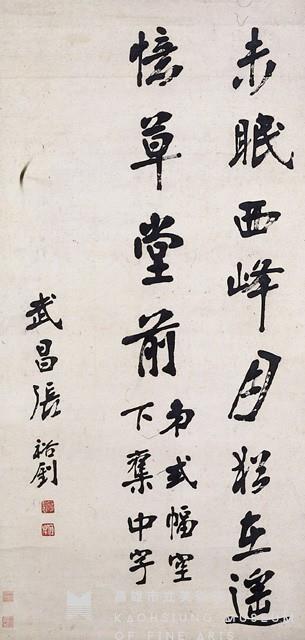 未眠西峰月猶在遙
憶草堂前
弟式幅空
下奪中字
武昌張裕釗
高雄市立美術館
KAOHSIUNG MUSEUM
OF FINE ARTS